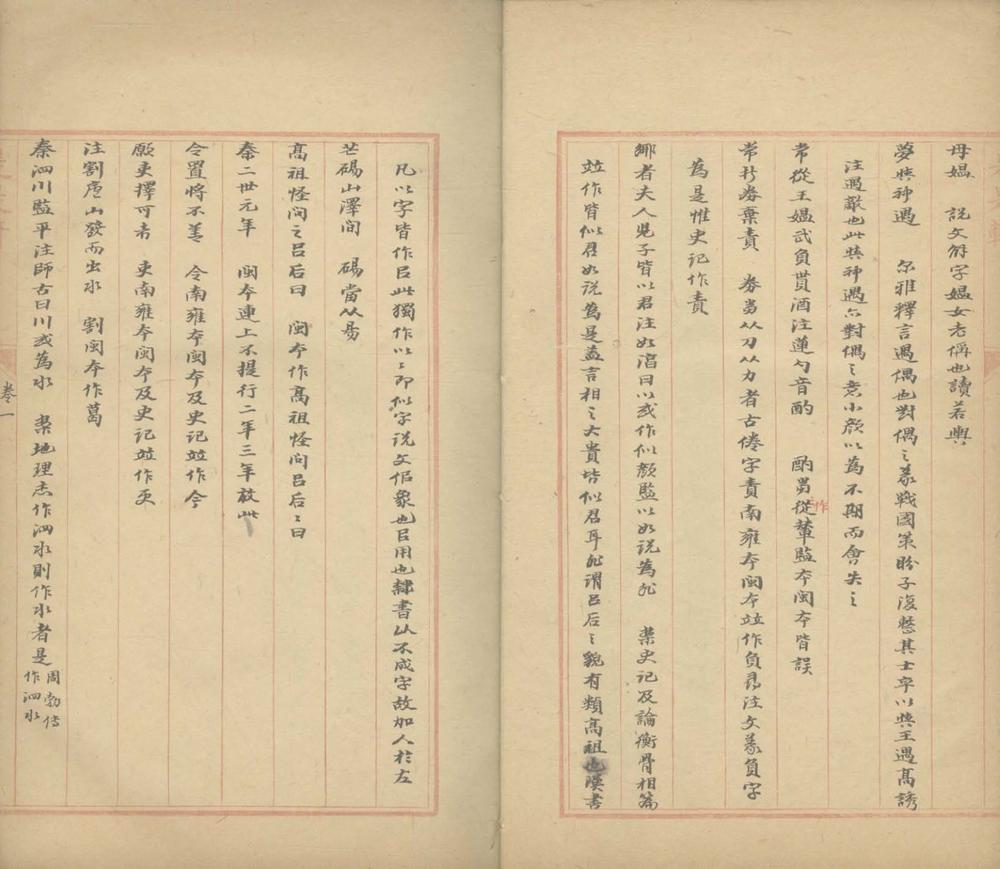 母媼　說文解字媼女老稱也讀若奧
夢與神遇　尔雅釋言遇偶也對偶之義戰國策盼子復整其士卒以與王遇高誘
注遇敵也此與神遇亦對偶之意小顏以為不期而會失之
常從王媼武負貰酒注蓮勺音酌　酌當作從輦監本閩本皆誤
常折券棄責　券當从刀从力者古倦字責南雍本閩本竝作負尋注文義負字
為是惟史記作責
鄉者夫人兒子皆以君注如淳曰以或作似顏監以如說為非　案史記及論衡骨相篇
竝作皆似君如說為是蓋言相之大貴皆似君耳非謂呂后之貌有類高祖也漢書
凡以字皆作㠯此獨作以以即似字說文佀象也㠯用也隸書㠯不成字故加人於左
芒碭山澤間　碭當从昜
高祖怪問之呂后曰　閩本作高祖怪問呂后后曰
秦二世元年　閩本連上不提行二年三年放此
令置將不善　令南雍本閩本及史記竝作今
願更擇可者　更南雍本閩本及史記竝作更
注割唐山發而出水　割閩本作葛
秦泗川監平注師古曰川或為水　案地理志作泗水則作水者是周勃傳作泗水
卷一